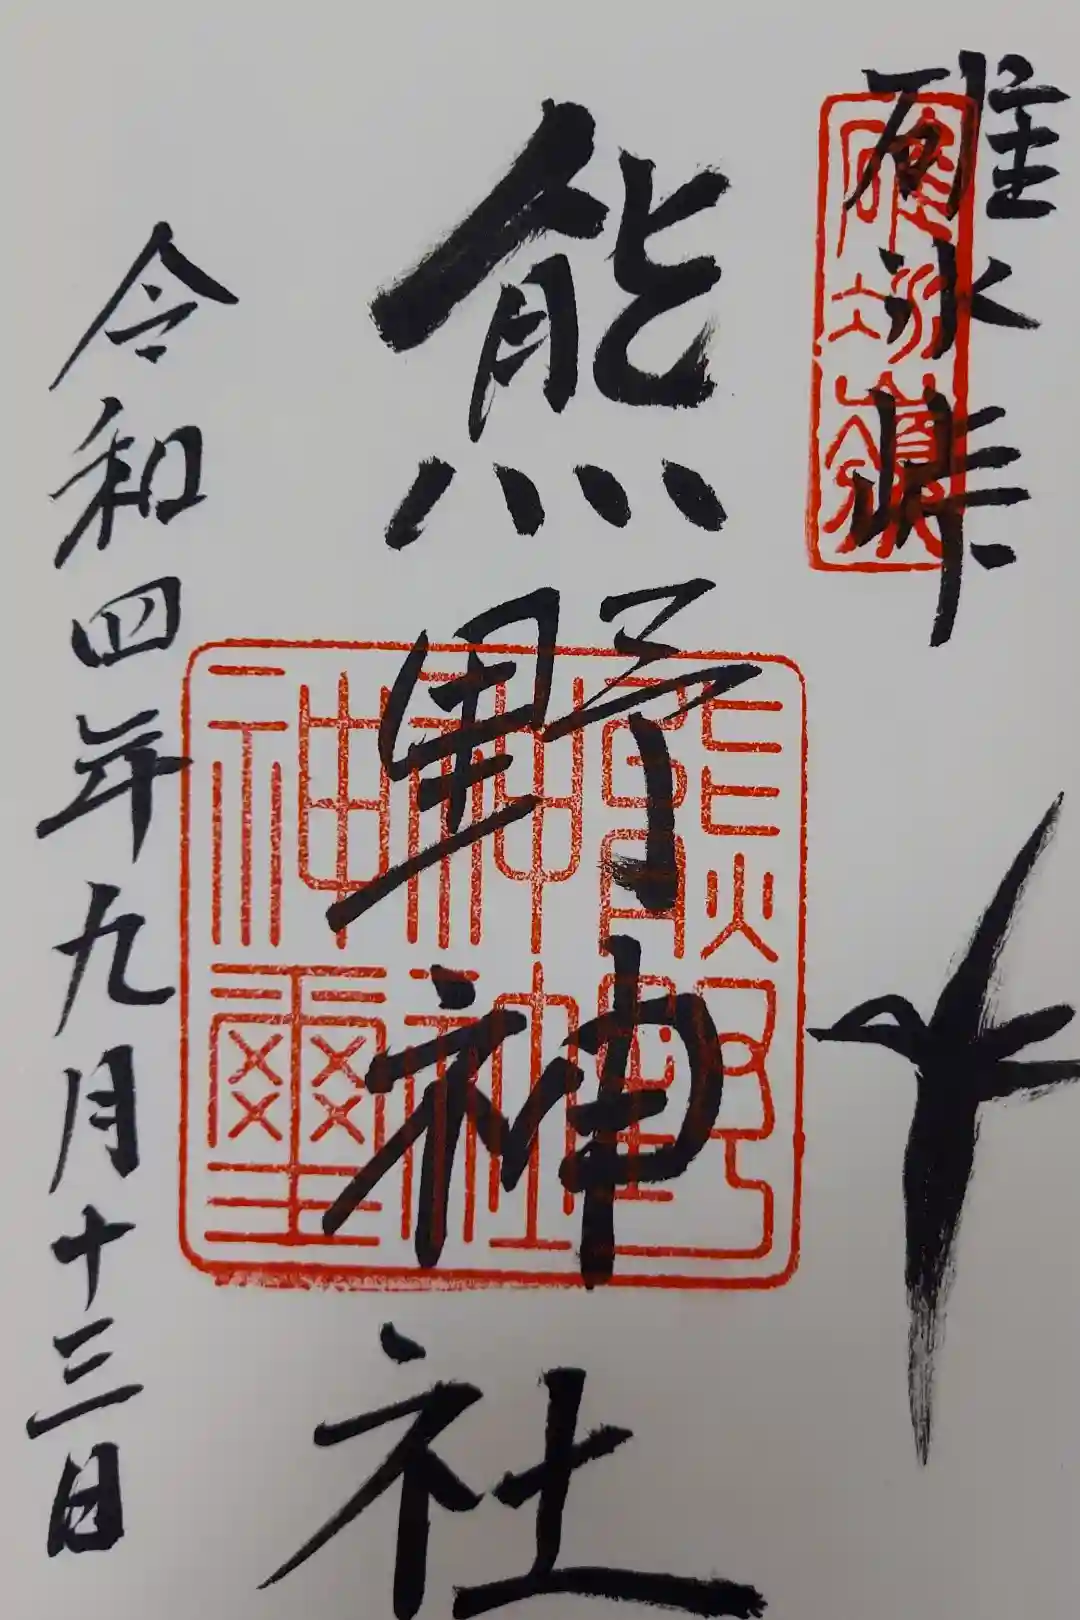 碓氷峠
熊野神社
令和四年九月十三日
碓氷嶺
熊野神社神璽